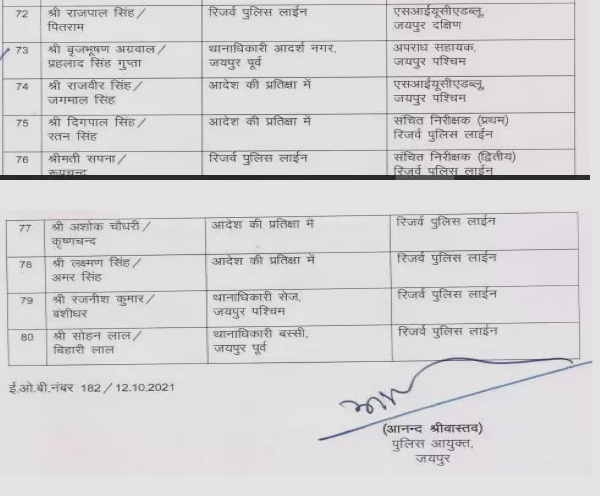 72 श्री राजपाल सिंह / रिजर्व पुलिस लाईन एसआईयूसीएडब्लू,
पितराम जयपुर दक्षिण
73 श्री बृजभूषण अग्रवाल / थानाधिकारी आदर्श नगर, अपराध सहायक,
प्रहलाद सिंह गुप्ता जयपुर पूर्व जयपुर पश्चिम
74 श्री राजवीर सिंह / आदेश की प्रतिक्षा में एसआईयूसीएडब्लू,
जगमाल सिंह जयपुर पश्चिम
75 श्री दिगपाल सिंह / आदेश की प्रतिक्षा में संचित निरीक्षक (प्रथम)
रतन सिंह रिजर्व पुलिस लाईन
76 श्रीमती सपना / रिजर्व पुलिस लाईन संचित निरीक्षक (द्वितीय)
रूपचन्द रिजर्व पुलिस लाईन
77 श्री अशोक चौधरी / आदेश की प्रतिक्षा में रिजर्व पुलिस लाईन
कृष्णचन्द
78 श्री लक्ष्मण सिंह / आदेश की प्रतिक्षा में रिजर्व पुलिस लाईन
अमर सिंह
79 श्री रजनीश कुमार / थानाधिकारी सेज, रिजर्व पुलिस लाईन
बंशीधर जयपुर पश्चिम
80 श्री सोहन लाल / थानाधिकारी बस्सी, रिजर्व पुलिस लाईन
बिहारी लाल जयपुर पूर्व
ई.ओ.बी.नंबर 182 / 12.10.2021
(आनन्द श्रीवास्तव)
पुलिस आयुक्त,
जयपुर